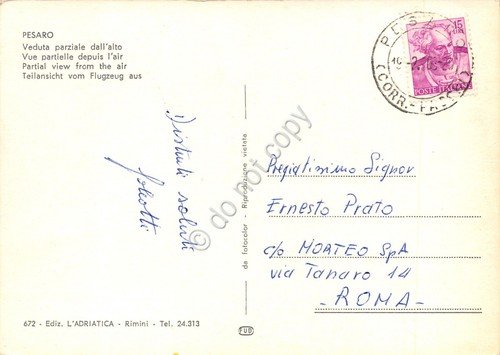 PESARO
Veduta parziale dall'alto
Vue partielle depuis l'air
Partial view from the air
Teilansicht vom Flugzeug aus
Distinti saluti
do not copy
da fotocolor - Riproduzione vietata
PESARO
(CORR.-PACCHI)
15
LIRE
POSTE ITALIANE
Pregiatissimo Signor
Ernesto Prato
c/o MORTEO SpA
via Tanaro 14
- ROMA -
672 - Ediz. L'ADRIATICA - Rimini - Tel. 24.313
FUB